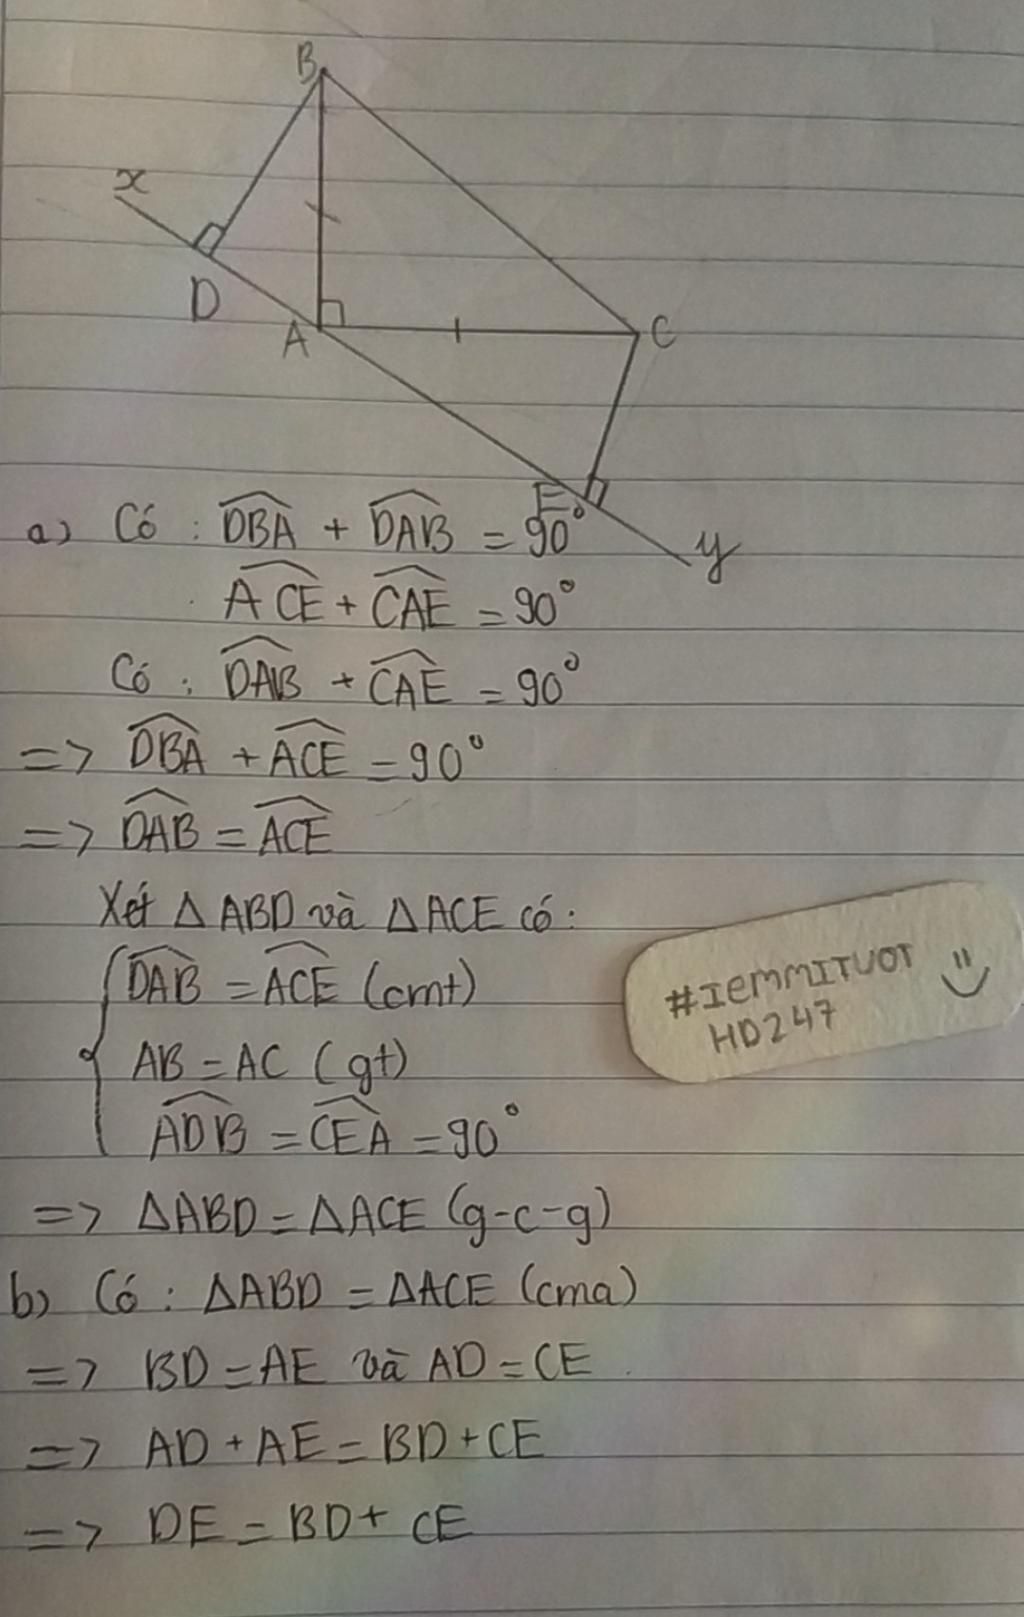 B
x
D
A
C
E
y
a) Có : DBA + DAB = 90°
ACE + CAE = 90°
Có : DAB + CAE = 90°
=> DBA + ACE = 90°
=> DAB = ACE
Xét Δ ABD và Δ ACE có :
DAB = ACE (cmt)
AB = AC (gt)
ADB = CEA = 90°
=> ΔABD = ΔACE (g-c-g)
#IEMMITUOT
HD247
b) Có : ΔABD = ΔACE (cma)
=> BD = AE và AD = CE
=> AD + AE = BD + CE
=> DE = BD + CE